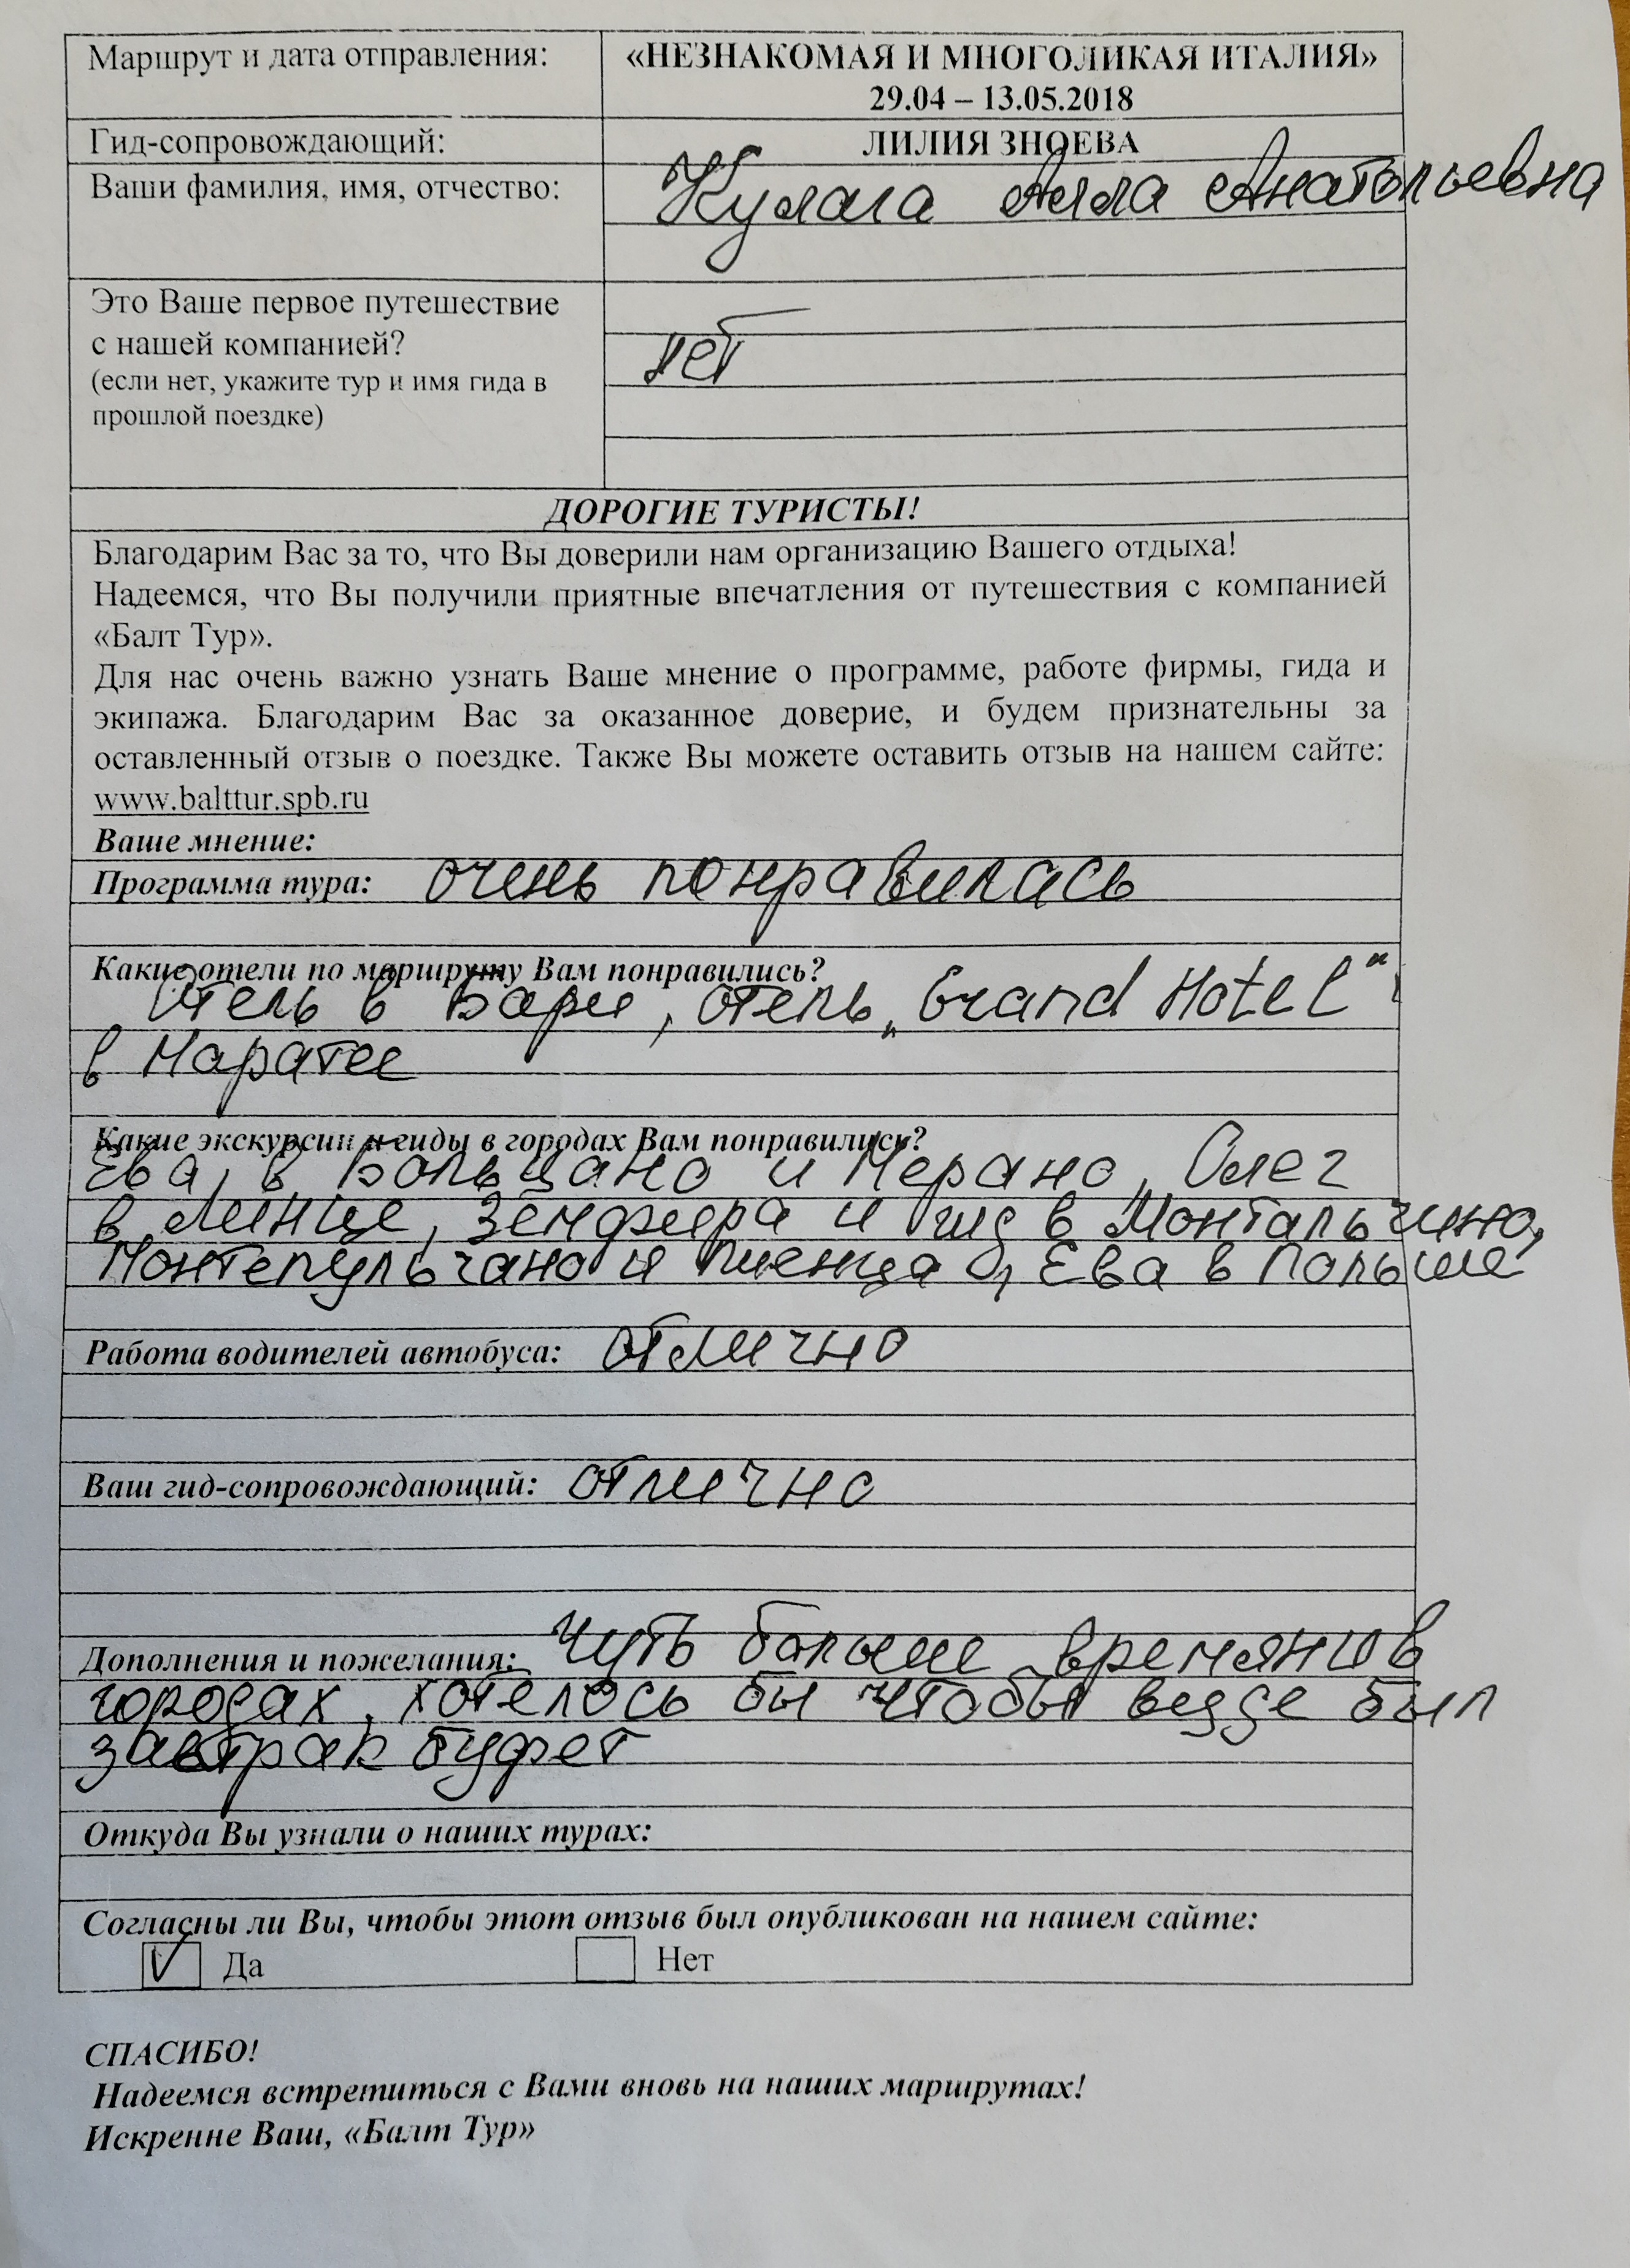 Маршрут и дата отправления:
«НЕЗНАКОМАЯ И МНОГОЛИКАЯ ИТАЛИЯ»
29.04 – 13.05.2018
Гид-сопровождающий:
ЛИЛИЯ ЗНОЕВА
Ваши фамилия, имя, отчество:
Кулага Алла Анатольевна
Это Ваше первое путешествие
с нашей компанией?
(если нет, укажите тур и имя гида в
прошлой поездке)
нет
ДОРОГИЕ ТУРИСТЫ!
Благодарим Вас за то, что Вы доверили нам организацию Вашего отдыха!
Надеемся, что Вы получили приятные впечатления от путешествия с компанией
«Балт Тур».
Для нас очень важно узнать Ваше мнение о программе, работе фирмы, гида и
экипажа. Благодарим Вас за оказанное доверие, и будем признательны за
оставленный отзыв о поездке. Также Вы можете оставить отзыв на нашем сайте:
www.balttur.spb.ru
Ваше мнение:
Программа тура: очень понравилась
Какие отели по маршруту Вам понравились?
Отель в Бари, отель „Grand Hotel“
в Маратее
Какие экскурсии и гиды в городах Вам понравились?
Ева, в Больцано и Мерано, Олег
в Линце, Земфира и гид в Монтальчино,
Монтепульчано и Пиенца, Ева в Польше
Работа водителей автобуса: отлично
Ваш гид-сопровождающий: отлично
Дополнения и пожелания: Чуть больше времени в
городах, хотелось бы чтобы везде был
завтрак буфет
Откуда Вы узнали о наших турах:
Согласны ли Вы, чтобы этот отзыв был опубликован на нашем сайте:
✓ Да Нет
СПАСИБО!
Надеемся встретиться с Вами вновь на наших маршрутах!
Искренне Ваш, «Балт Тур»